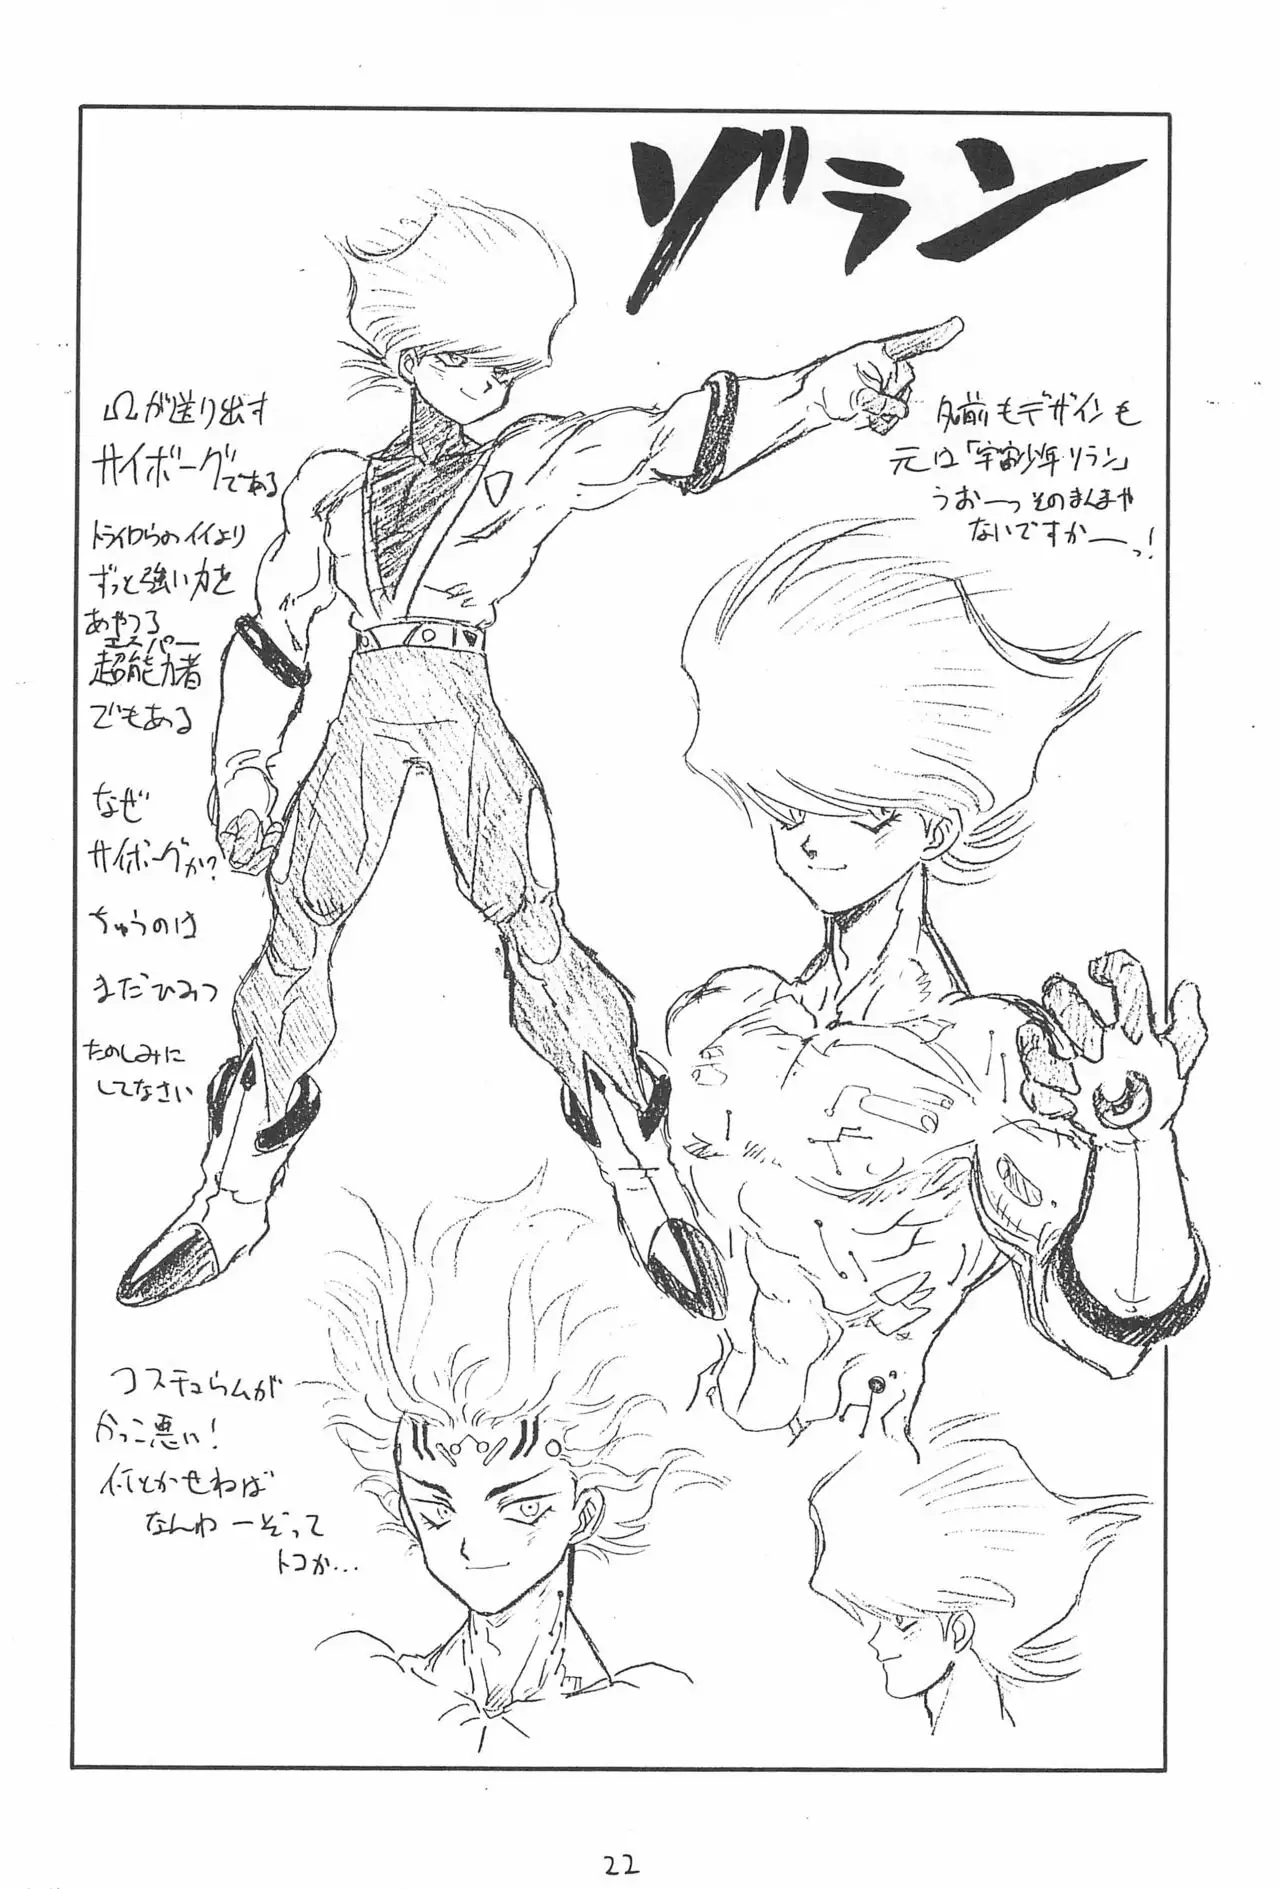 ゾラン
名前もデザインも
元は「宇宙少年ソラン」
うおーっそのまんまや
ないですかーっ!
Ωが送り出す
サイボーグである
ずっと強い力を
あやつる
エスパー
超能力者
でもある
なぜ
サイボーグか?
ちゅうのは
まだひみつ
たのしみに
してなさい
コスチュームが
かっこ悪い!
何とかせねば
なんねーぞって
トコか…
22